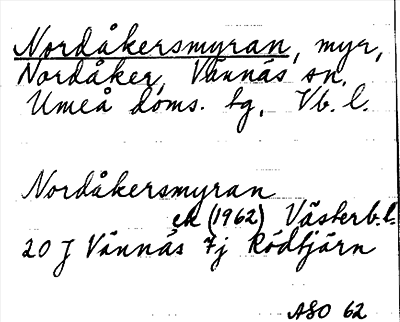 Nordåkersmyran, myr,
Nordåker, Vännäs sn,
Umeå doms. tg, Vb. l.
Nordåkersmyran
ek (1962) Västerb.l.
20 J Vännäs 7j Rödtjärn
ASO 62